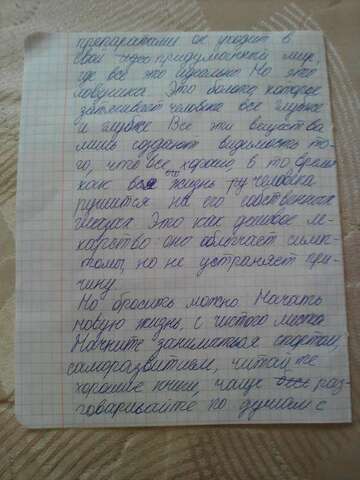 препаратами он уходит в
свой придуманный мир,
где всё это идеально. Но это
ловушка. Это болото, которое
затягивает человека все глубже
и глубже. Все эти вещества
лишь создают видимость то-
го, что все хорошо в то время
как вся жизнь человека
рушится на его собственных
глазах. Это как дешевое ле-
карство оно облегчает симп-
томы, но не устраняет при-
чину.
Но бросить можно. Начать
новую жизнь, с чистого листа.
Начните заниматься спортом,
саморазвитием, читайте
хорошие книги, чаще раз-
говаривайте по душам с